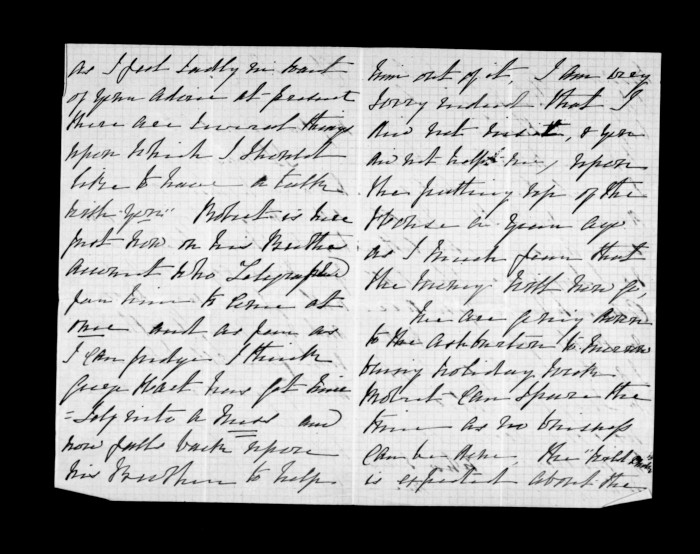 as I feel sadly in want
of your advice at present
there are several things
upon which I should
like to have a talk
with you. Robert is here
just now on his Brothers
account who Telegraphed
for him to come at
once and as far as
I can judge I think
George Hart has got him
=self into a mess and
now falls back upon
his Brother to help
him out of it, I am very
sorry indeed that I
did not insist, & you
did not help me, upon
the putting up of the
House a year ago
as I much fear that
the money will now go,
We are going down
to the Ashburton to morrow
being holiday week
Robert can spare the
time as no business
can be done, the
is expected about the